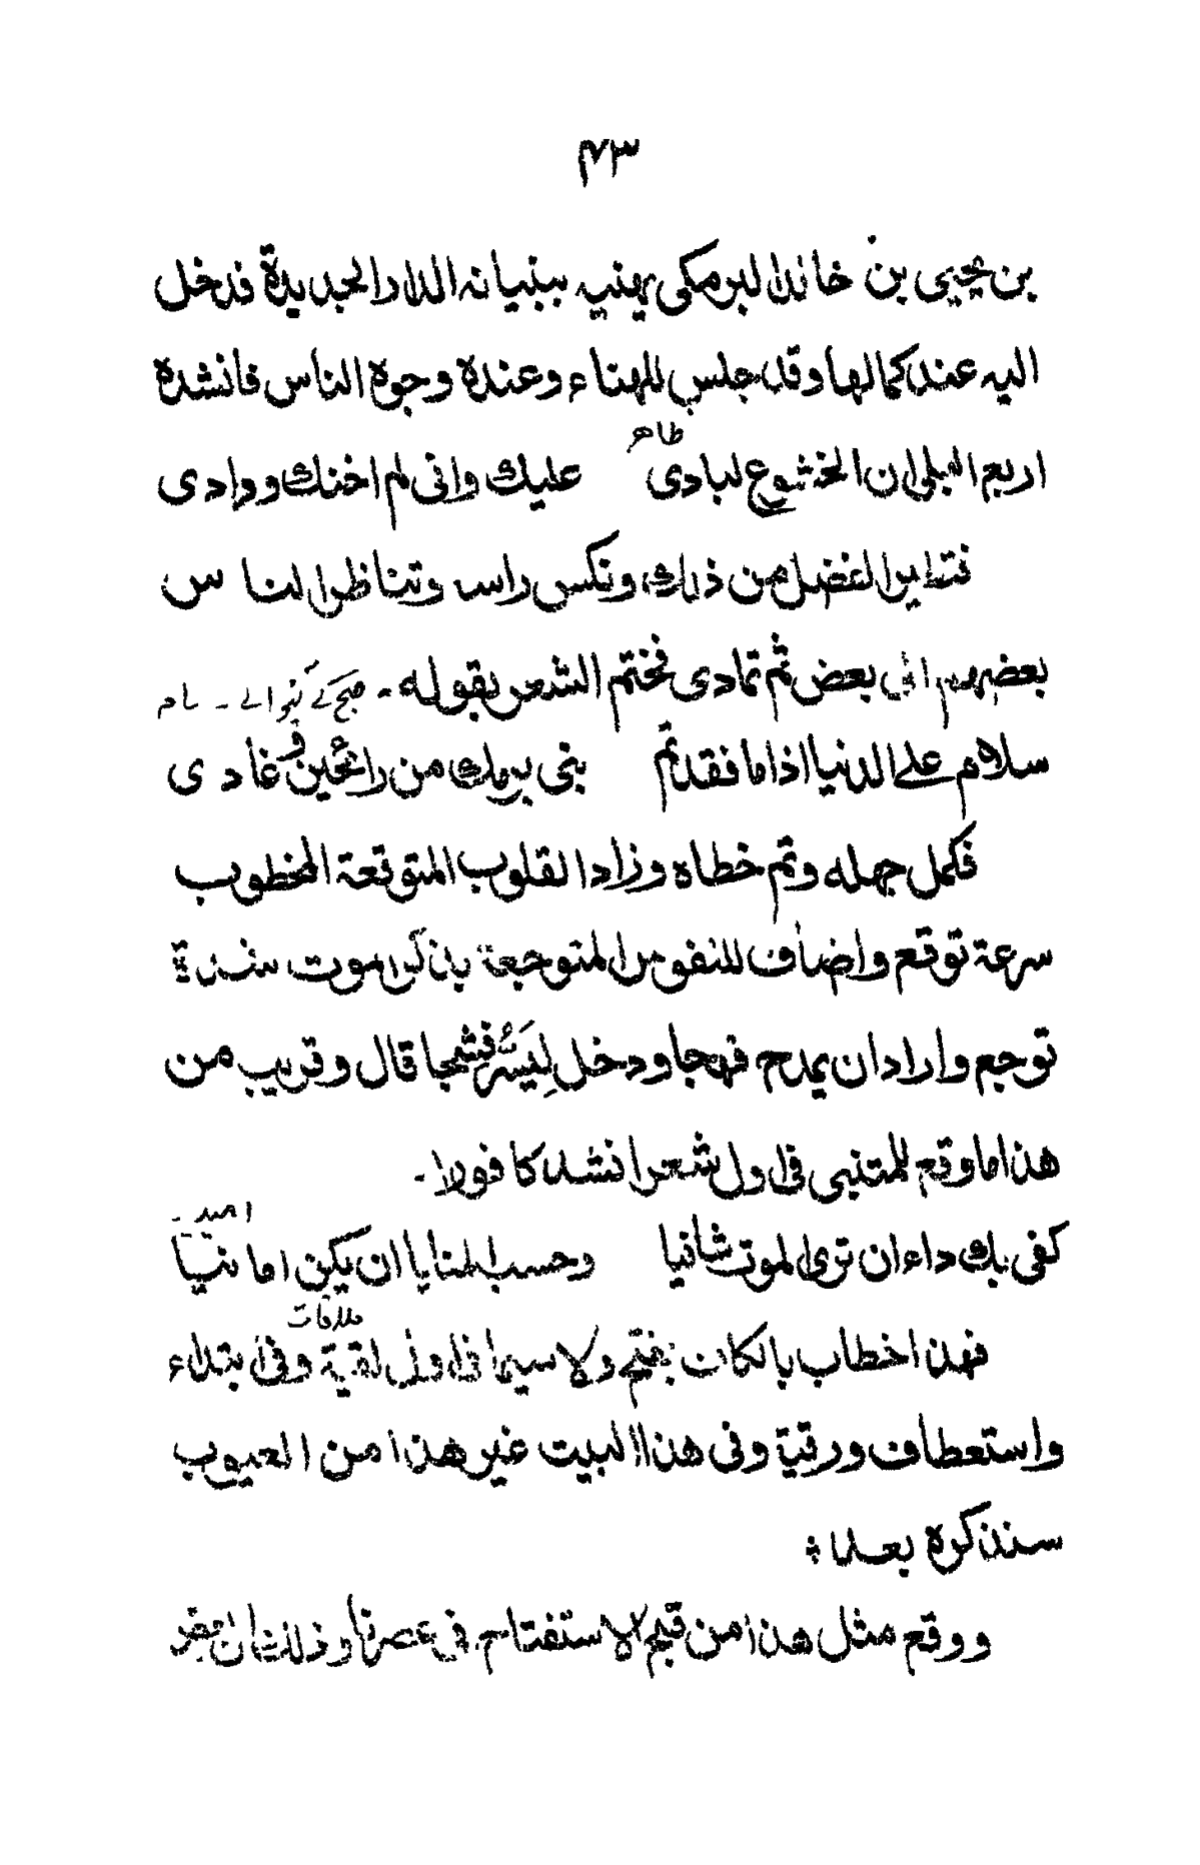 ۴۳
بن يحيى بن خالد البرمكى يهنيه ببنيانه الدار الجديدة فدخل
اليه عند كمالها وقد جلس للهناء وعنده وجوه الناس فانشده
ظاهر
اربع البلى ان الخشوع لبادى عليك وانى لم اخنك ودادى
فتطير الفضل من ذلك ونكس راسه وتناظر الناس
بعضهم الى بعض ثم تمادى فختم الشعر بقوله -
سلام على الدنيا اذا ما فقدتم بنى برمك من رائحين وغادى
فكمل جهله وتم خطاه وزاد القلوب المتوقعة الخطوب
سرعة توقع واضاف للنفوس المتوجعة بذكر الموت شدة
توجع واراد ان يمدح فهجا ودخل لِيَسُرَّ فشجا قال وقريب من
هذا ما وقع للمتنبى فى اول شعر انشده كافورا -
امید -
كفى بك داء ان ترى الموت شافيا وحسب المنايا ان يكن امانيا
ملاقات
فهذا خطاب بالكاف يفتح ولا سيما فى اول لقية وفى ابتداء
واستعطاف ورقية وفى هذا البيت غير هذا من العيوب
سنذكره بعد
ووقع مثل هذا من قبيح الاستفتاح فى عصرنا وذلك ان